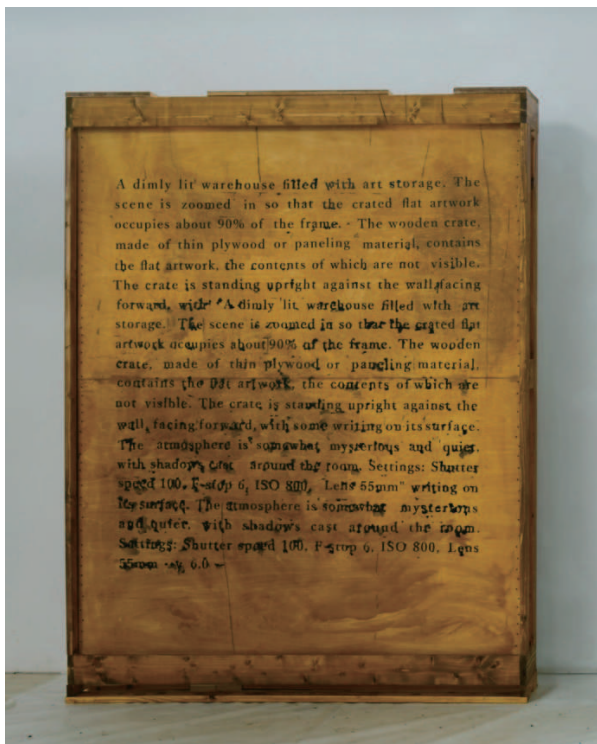 A dimly lit warehouse filled with art storage. The
scene is zoomed in so that the crated flat artwork
occupies about 90% of the frame. - The wooden crate,
made of thin plywood or paneling material, contains
the flat artwork, the contents of which are not visible.
The crate is standing upright against the wall, facing
forward, with "A dimly lit warehouse filled with art
storage. The scene is zoomed in so that the crated flat
artwork occupies about 90% of the frame. The wooden
crate, made of thin plywood or paneling material,
contains the flat artwork, the contents of which are
not visible. The crate is standing upright against the
wall, facing forward, with some writing on its surface.
The atmosphere is somewhat mysterious and quiet,
with shadows cast around the room. Settings: Shutter
speed 100, F-stop 6, ISO 800, Lens 55mm" writing on
its surface. The atmosphere is somewhat mysterious
and quiet, with shadows cast around the room.
Settings: Shutter speed 100, F-stop 6, ISO 800, Lens
55mm 6.0 –